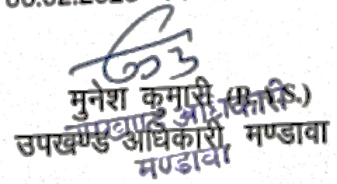 मुनेश कुमारी (R.A.S.)
उपखण्ड अधिकारी, मण्डावा
उपखण्ड अधिकारी
मण्डावा